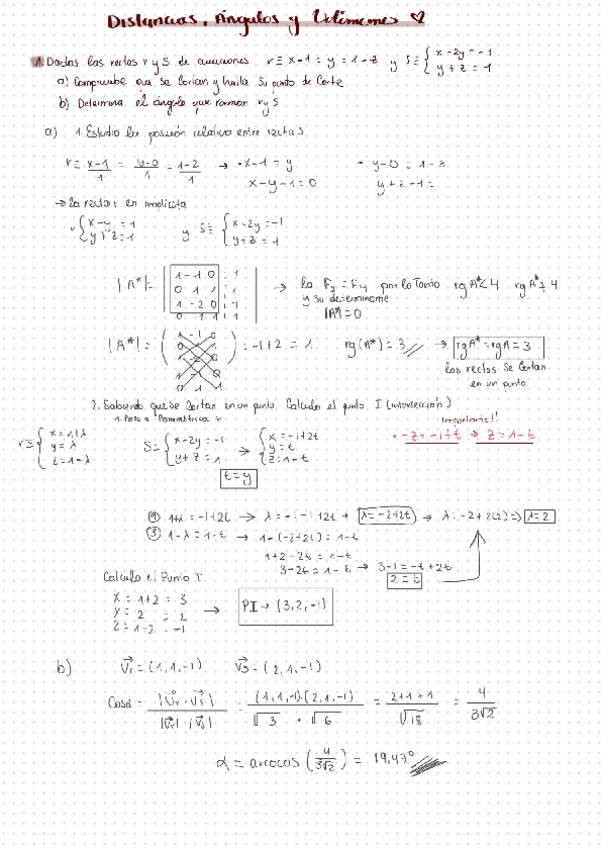 Distancias, Ángulos y Volúmenes ♡
1. Dadas las rectas r y s de ecuaciones r ≡ x-1 = y = 1-z y s ≡ { x-2y = -1
y+z = 1
a) Comprueba que se cortan y halla su punto de corte
b) Determina el ángulo que forman r y s
a) 1. Estudio la posición relativa entre rectas
r ≡ x-1/1 = y-0/1 = 1-z/1 → • x-1 = y • y-0 = 1-z
x-y-1=0 y+z-1=
→ la recta r en implícita
r { x-y = 1 y S ≡ { x-2y = -1
y+z = 1 y+z = 1
|A*| = | 1 -1 0 : 1
0 1 1 : 1
1 -2 0 : -1
0 1 1 : 1 | → la F2 = F4 por lo tanto rgA* < 4 rgA* ≠ 4
y su determinante
|A*| = 0
|A*| = ( 1 -1 0
0 1 1
1 -2 0
1 -1 0
0 1 1 ) = -1+2 = 1 rg(A*) = 3 → rgA* = rgA = 3
las rectas se cortan
en un punto
2. Sabiendo que se cortan en un punto Calculo el punto I (intersección)
1. Paso a Paramétrica r
Importante!!
r ≡ { x = 1+λ
y = λ
z = 1-λ
S ≡ { x-2y = -1
y+z = 1 → { x = -1+2t
y = t
z = 1-t
• -z = -1+t → z = 1-t
t = y
① 1+λ = -1+2t → λ = -1-1+2t → λ = -2+2t → λ = -2+2(2) => λ = 2
③ 1-λ = 1-t → 1-(-2+2t) = 1-t
1+2-2t = 1-t
3-2t = 1-t → 3-1 = -t+2t
2 = t
Calculo el Punto I
x = 1+2 = 3
y = 2 = 2
z = 1-2 = -1
→ PI → (3,2,-1)
b) Vr = (1,1,-1) Vs = (2,1,-1)
Cosα = |Vr · Vs| / |Vr| · |Vs| = (1,1,-1)·(2,1,-1) / √3 · √6 = 2+1+1 / √18 = 4 / 3√2
α = arccos (4 / 3√2) = 19,47°